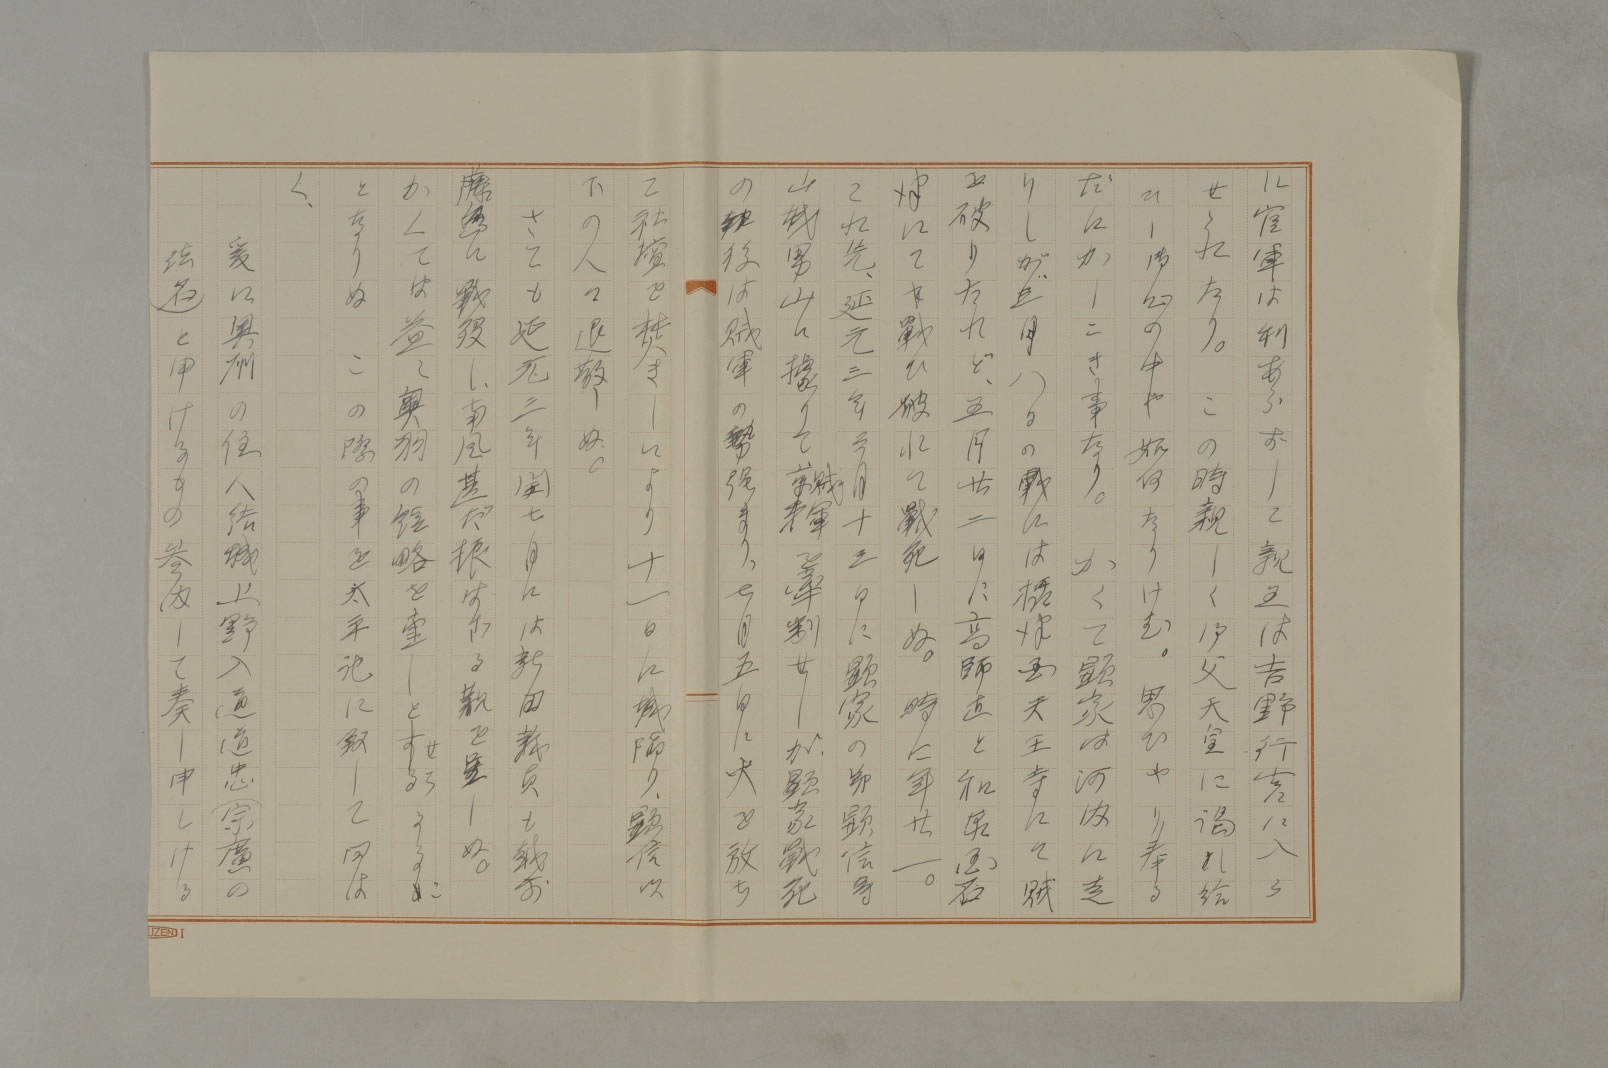 に官軍は利あらずして親王は吉野行宮に入ら
せられたり。この時親しく御父天皇に謁れ給
ひし御心の中や如何なりけむ。思ひやり奉る
だにかしこき事なり。かくて顕家は河内に走
りしが三月八日の戦には摂津国天王寺にて賊
を破りたれど、五月廿二日に高師直と和泉国石
津にて戦ひ破れて戦死しぬ。時に年廿一。
これ先、延元三年三月十三日に顕家の弟顕信等
山城男山に據りて、賊軍を牽制せしが、顕家戦死
の後は賊軍の勢強まり、七月五日に火を放ち
て社壇を焚きしにより十一日に城陥り、顕信以
下の人々退散しぬ。
さても延元三年閏七月には新田義貞も越前
藤島に戦歿し、南風甚だ振はざる観を呈しぬ。
かくては益々奥羽の経略を重しとせらるること
となりぬ この際の事を太平記に叙して曰は
く、
爰に奥州の住人結城上野入道道忠(宗広の
法名)と申けるもの参内して奏し申しける
UZEN I